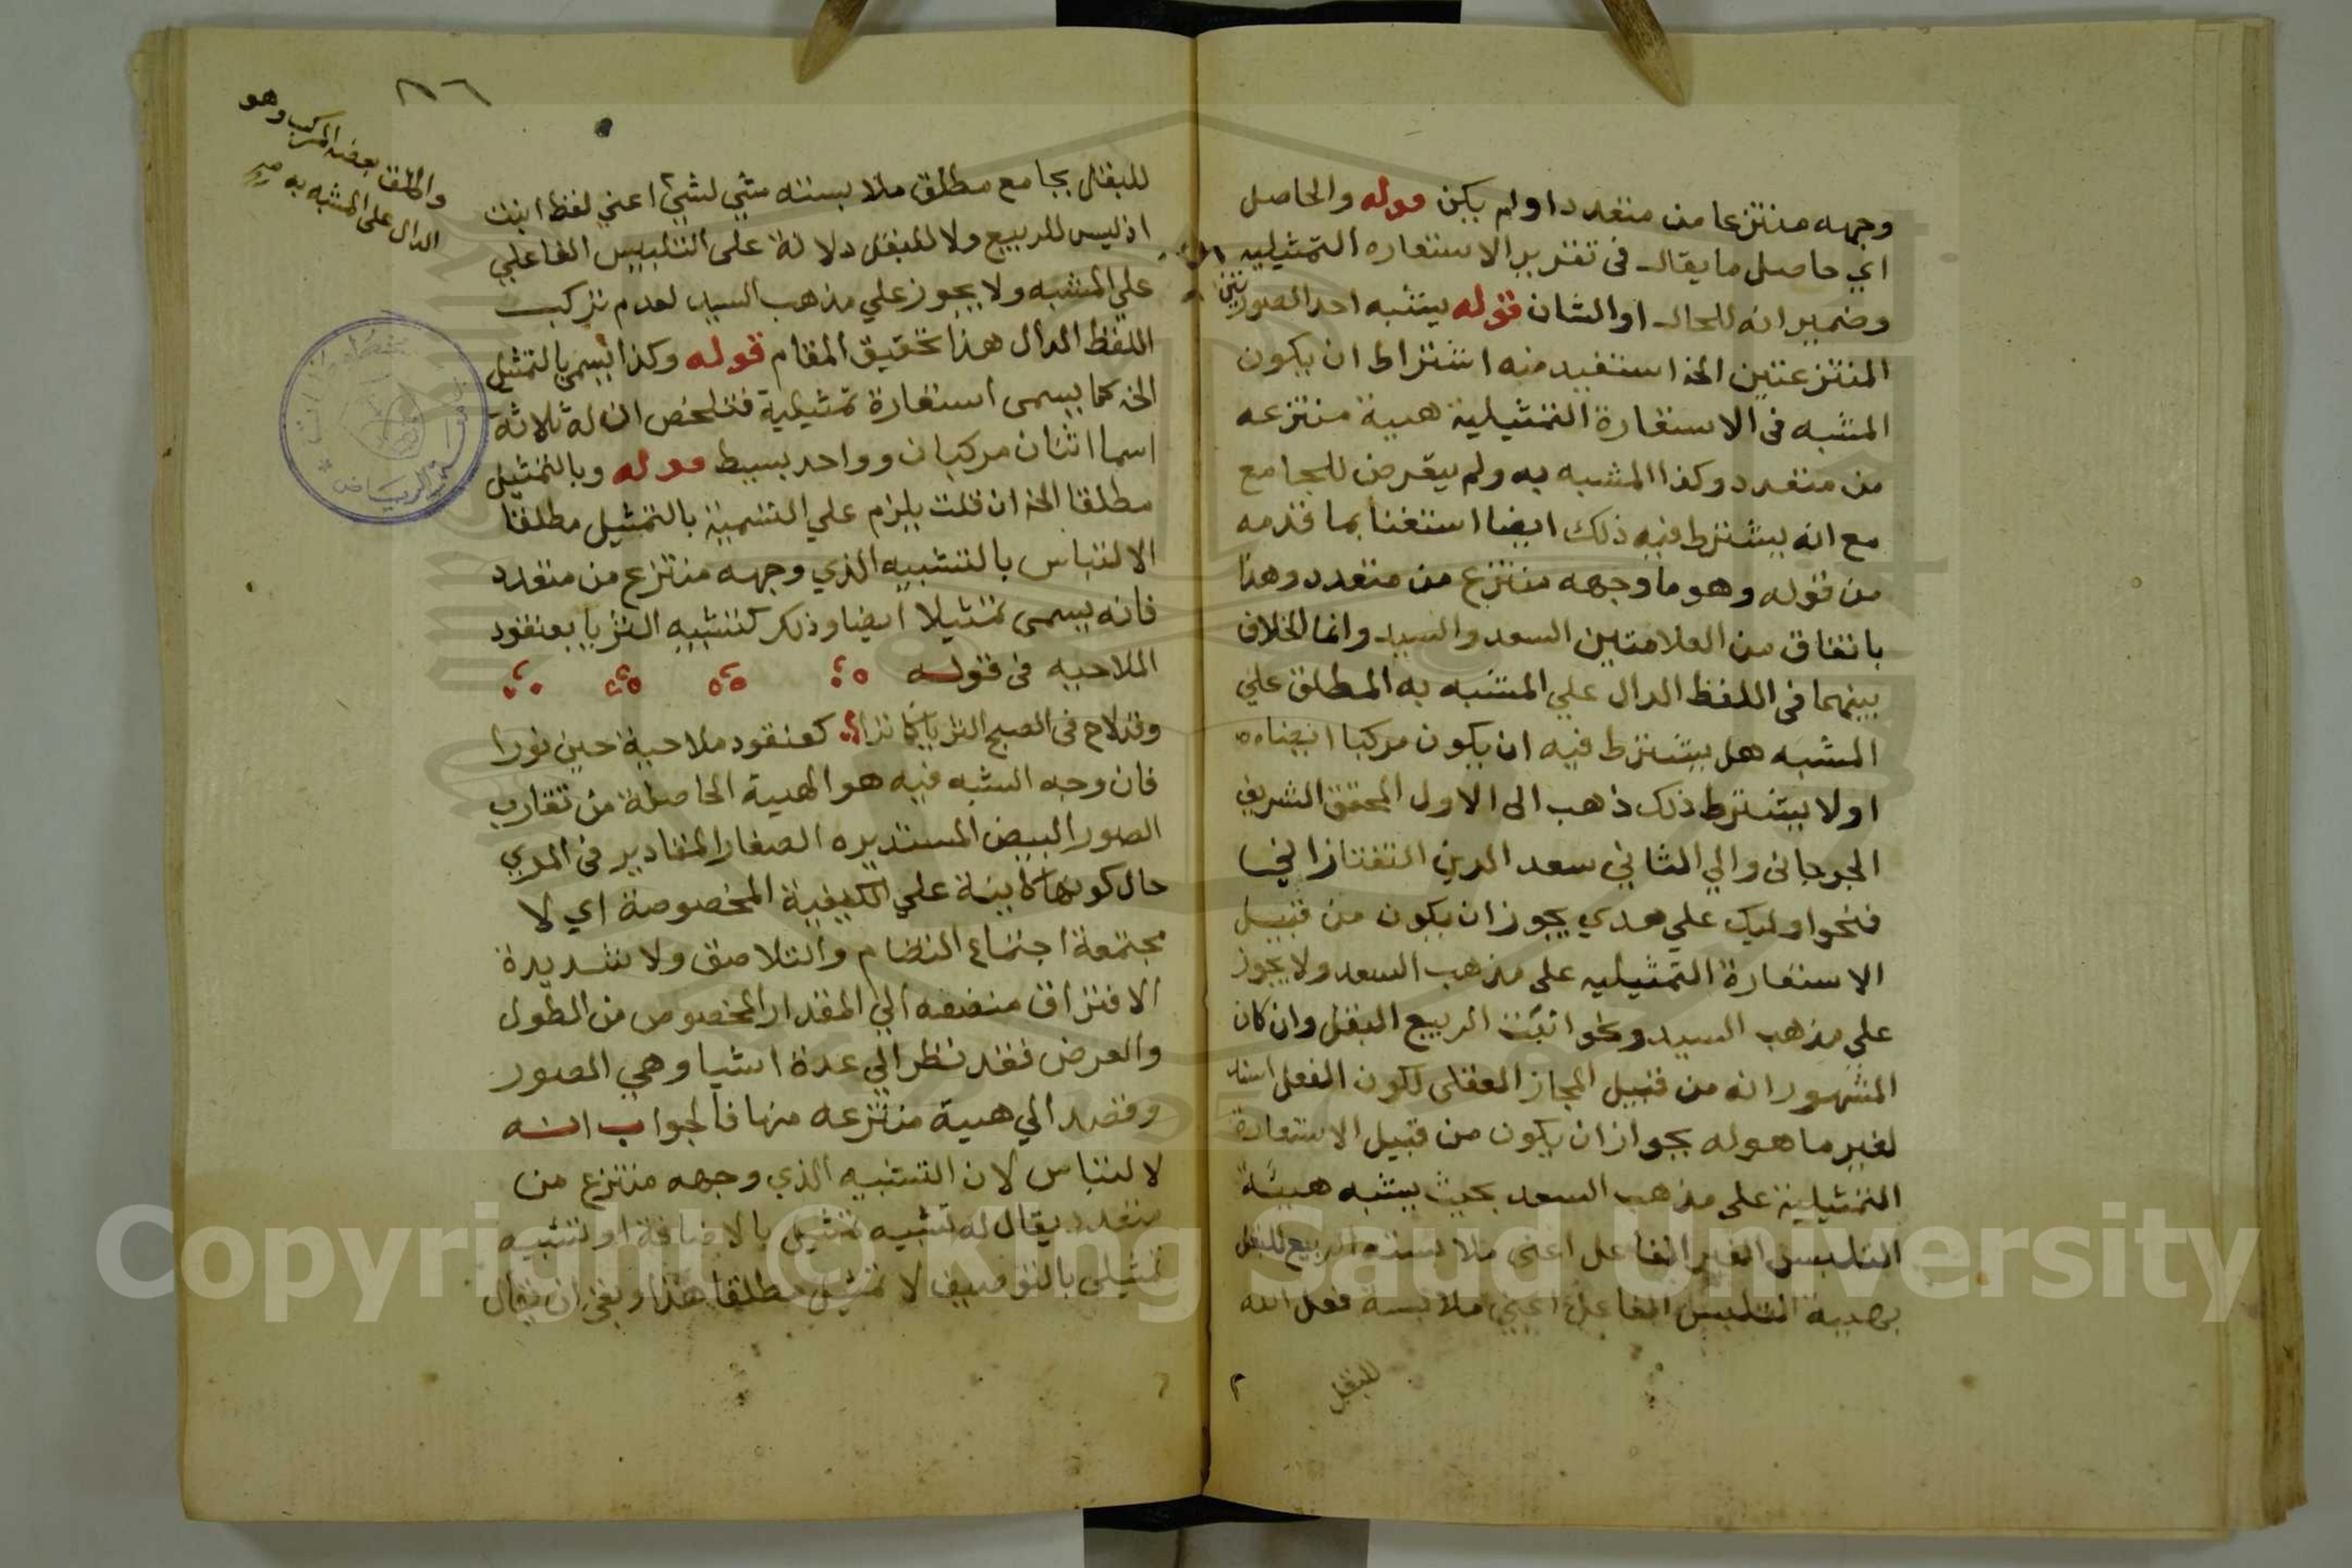 وجهه منتزعا من متعدد اولم يكن قوله والحاصل
اي حاصل ما يقال في تقرير الاستعاره التمثيليه
وضمير انه للحال او الشان قوله يشبه احد الصورتين
المنتزعتين الخ استفيد منه اشتراط ان يكون
المشبه في الاستعارة التمثيلية هيية منتزعه
من متعدد وكذا المشبه به ولم يتعرض للجامع
مع انه يشترط فيه ذلك ايضا استغنا بما قدمه
من قوله وهو ما وجهه منتزع من متعدد وهذا
باتفاق من العلامتين السعد والسيد وانما الخلاف
بينهما في اللفظ الدال علي المشبه به المطلق علي
المشبه هل يشترط فيه ان يكون مركبا ايضا
اولا يشترط ذلك ذهب الى الاول المحقق الشريف
الجرجاني والي الثاني سعد الدين التفتازاني
فنحو اوليك علي هدي يجوز ان يكون من قبيل
الاستعارة التمثيليه على مذهب السعد ولا يجوز
علي مذهب السيد ونحو انبت الربيع البقل وان كان
المشهور انه من قبيل المجاز العقلى لكون الفعل اسند
لغير ما هوله يجوز ان يكون من قبيل الاستعارة
التمثيلية على مذهب السعد بحيث يشبه هيئة
التلبس الغير الفاعل اعني ملابسته الربيع للبقل
بهيية التلبس الفاعلي اعني ملابسة فعل الله
للبقل
٨٦
والمطلق بعضه المركب وهو
الدال على المشبه به
للبقل بجامع مطلق ملابسته شي لشيئ اعني لفظ انبت
اذ ليس للربيع ولا للبقل دلالة على التلبيس الفاعلي
علي المشبه ولا يجوز علي مذهب السيد لعدم تركيب
اللفظ الدال هذا تحقيق المقام قوله وكذا يسمي بالتمثيل
الخ كما يسمى استعارة تمثيلية فتلخص ان له ثلاثة
اسما اثنان مركبان وواحد بسيط قوله وبالتمثيل
مطلقا الخ ان قلت يلزم علي التسمية بالتمثيل مطلقا
الالتباس بالتشبيه الذي وجهه منتزع من متعدد
فانه يسمى تمثيلا ايضا وذلك كتشبيه الثريا بعنقود
الملاحيه في قوله
وقد لاح في الصبح الثريا كما ترا كعنقود ملاحية حين نورا
فان وجه الشبه فيه هو الهيية الحاصلة من تقارب
الصور البيض المستديره الصغار المقادير في المري
حال كونها كاينة علي الكيفية المخصوصة اي لا
مجتمعة اجتماع النظام والتلاصق ولا شديدة
الافتراق منضمه الي المقدار المخصوص من الطول
والعرض فقد نظر الي عدة اشيا وهي الصور
وقصد الي هيية منتزعه منها فالجواب انه
لا لتباس لان التشبيه الذي وجهه منتزع من
متعدد يقال له تشبيه تمثيل بالاضافة او تشبيه
تمثيلى بالتوصيف لا تمثيل مطلقا هذا وبقي ان يقال
Copyright © King Saud University